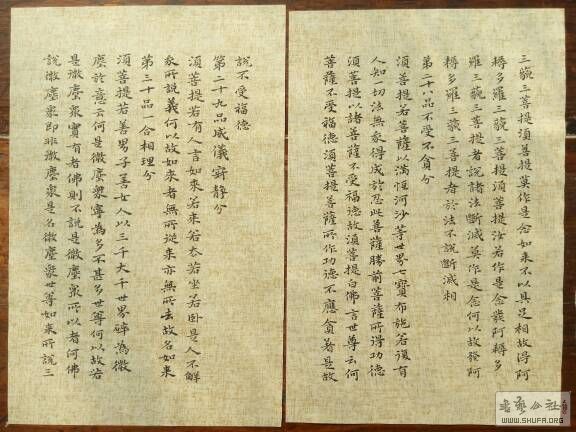 三藐三菩提須菩提莫作是念如來不以具足相故得阿
耨多羅三藐三菩提須菩提汝若作是念發阿耨多
羅三藐三菩提者說諸法斷滅莫作是念何以故發阿
耨多羅三藐三菩提者於法不說斷滅相
第二十八品不受不貪分
須菩提若菩薩以滿恒河沙等世界七寶布施若復有
人知一切法無我得成於忍此菩薩勝前菩薩所得功德
須菩提以諸菩薩不受福德故須菩提白佛言世尊云何
菩薩不受福德須菩提菩薩所作功德不應貪著是故
說不受福德
第二十九品威儀寂靜分
須菩提若有人言如來若來若去若坐若卧是人不解
我所說義何以故如來者無所從來亦無所去故名如來
第三十品一合相理分
須菩提若善男子善女人以三千大千世界碎為微
塵於意云何是微塵衆寧為多不甚多世尊何以故若
是微塵衆實有者佛則不說是微塵衆所以者何佛
說微塵衆即非微塵衆是名微塵衆世尊如來所說三
書藝公社
WWW.SHUFA.ORG